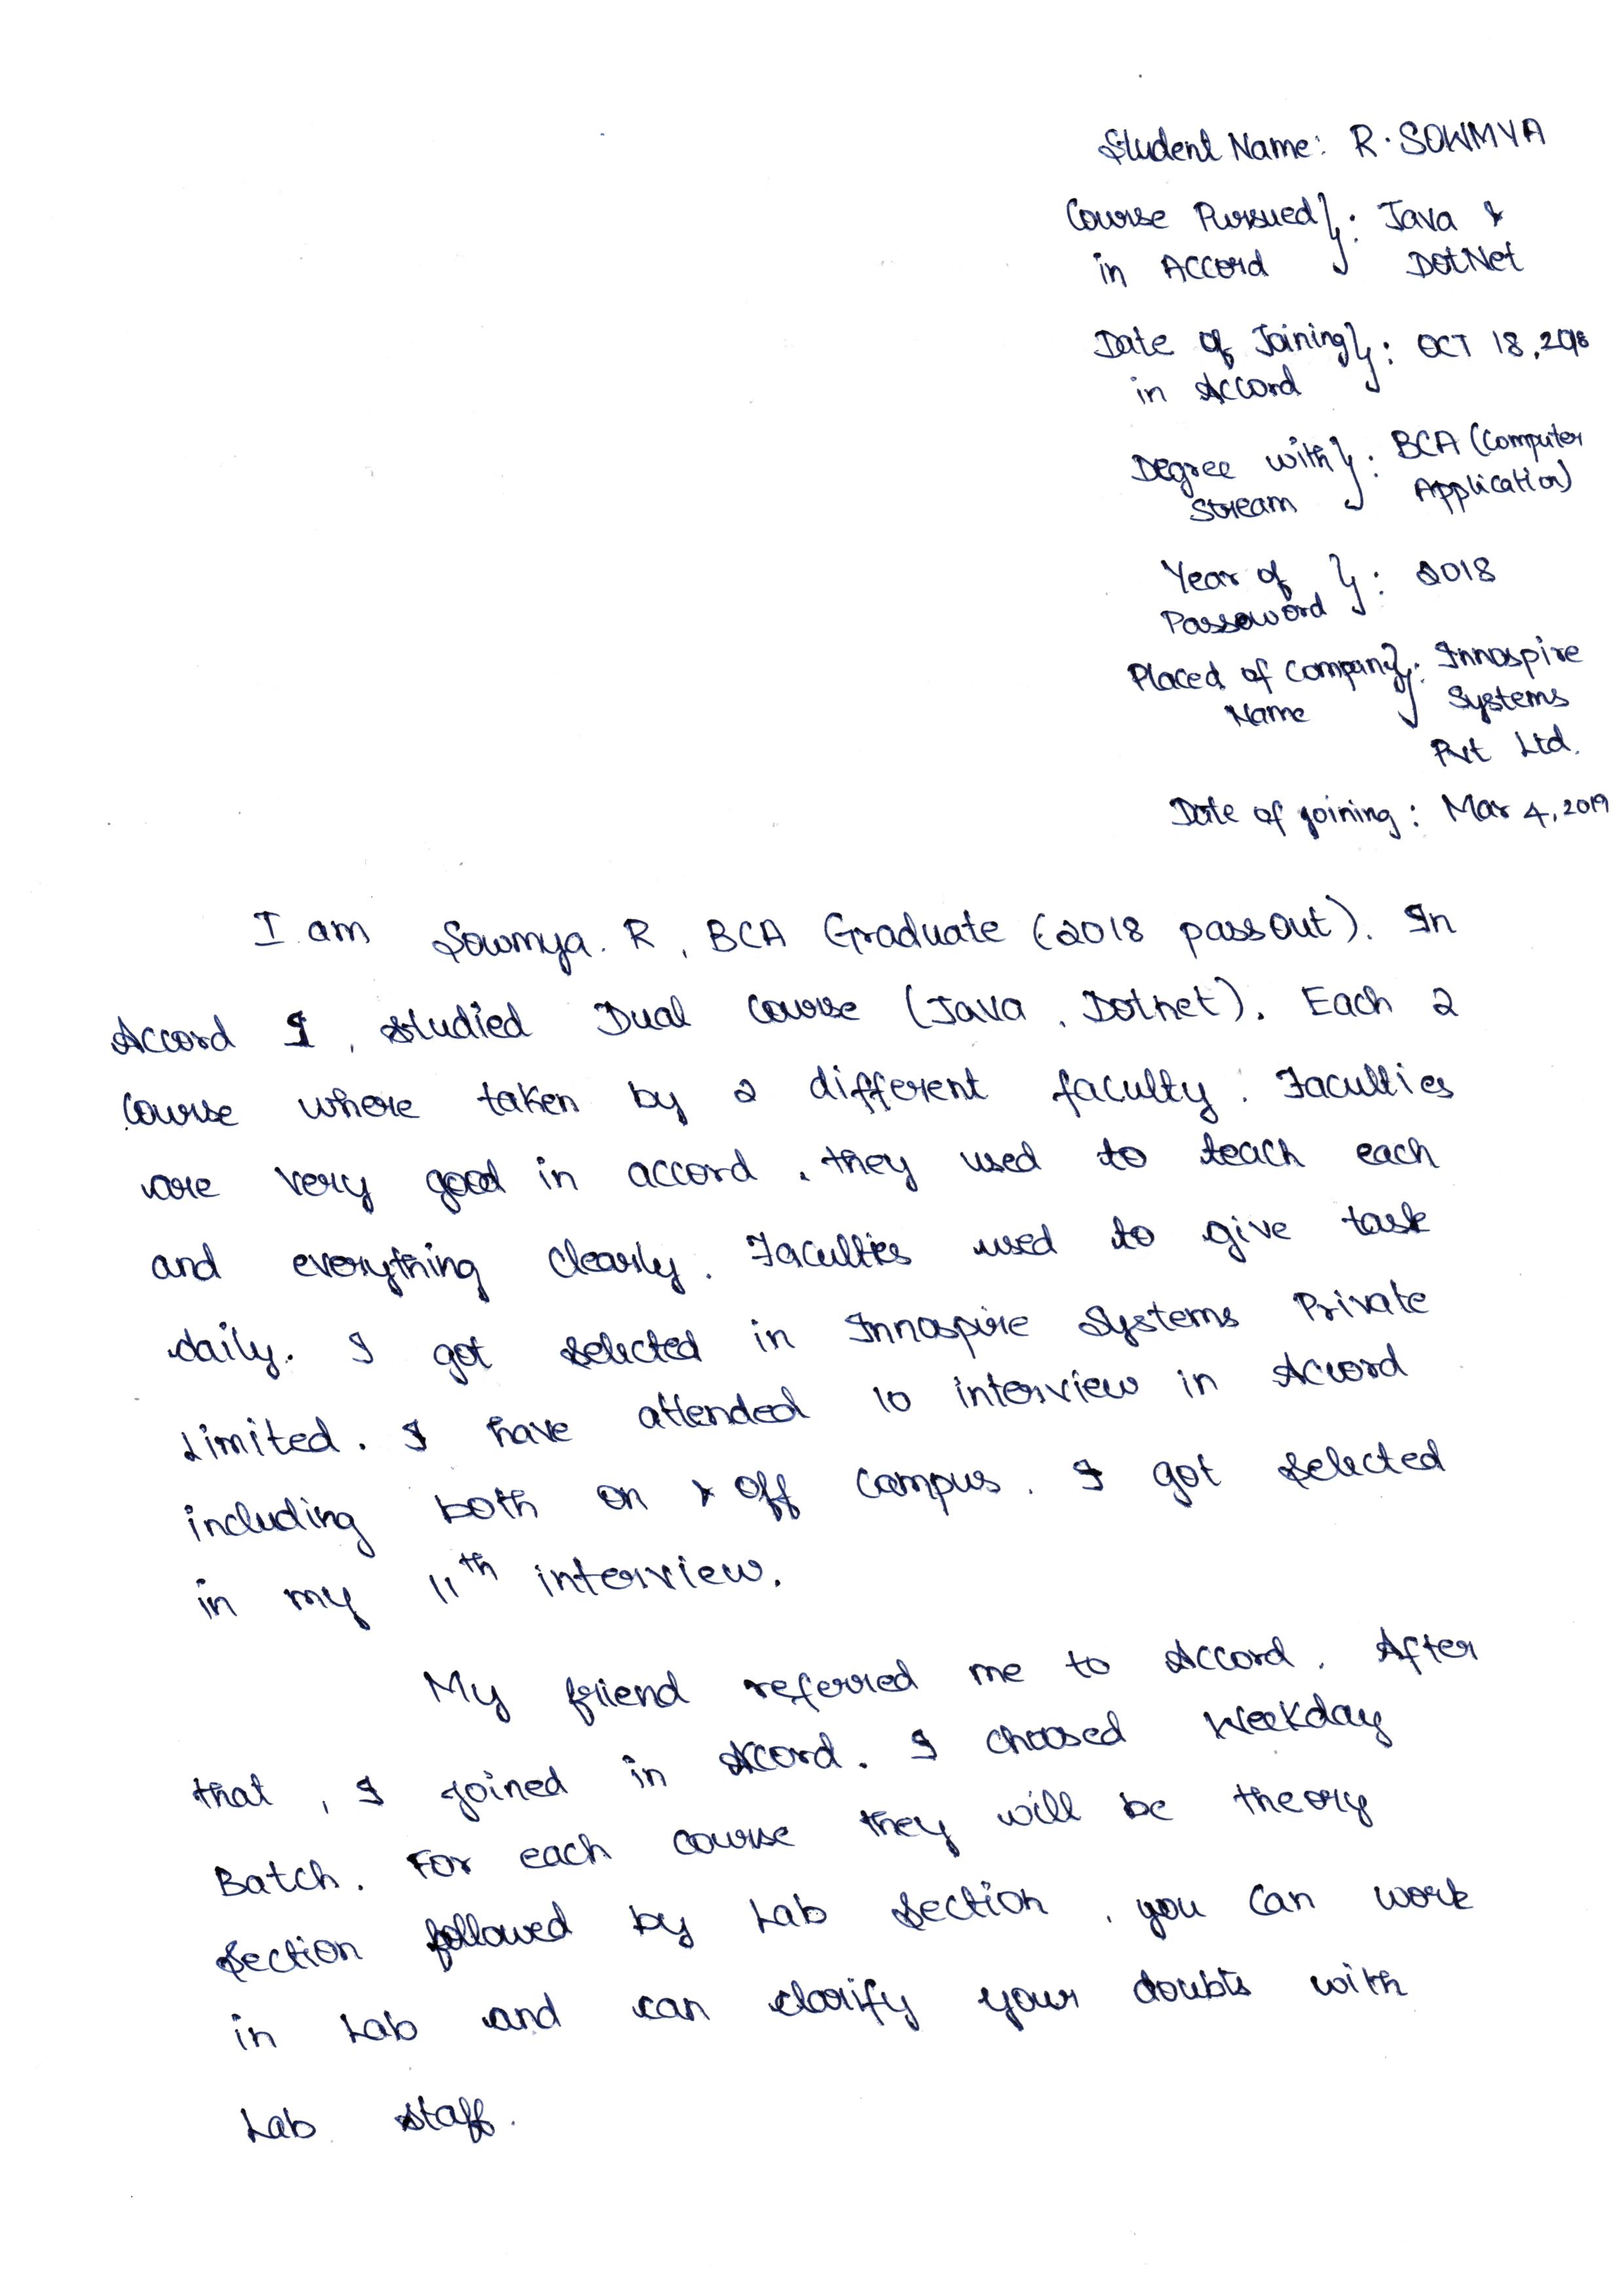 Student Name: R. SOWMYA
Course Pursued }: Java &
in Accord DotNet
Date of Joining }: OCT 18, 2018
in Accord
Degree with }: BCA (Computer
Stream Application)
Year of }: 2018
Passoword
Placed of Company }: Innospire
Name Systems
Pvt Ltd.
Date of joining: Mar 4, 2019
I am Sowmya. R, BCA Graduate (2018 passout). In
Accord I, studied Dual Course (Java, Dotnet). Each 2
Course where taken by 2 different faculty. Faculties
are very good in accord, they used to teach each
and everything clearly. Faculties used to give task
daily. I got selected in Innospire Systems Private
Limited. I have attended 10 interview in Accord
including both on & off campus. I got selected
in my 11th interview.
My friend referred me to Accord. After
that, I joined in Accord. I choosed Weekday
Batch. For each course they will be theory
section followed by Lab section, you can work
in Lab and can clarify your doubts with
Lab staff.